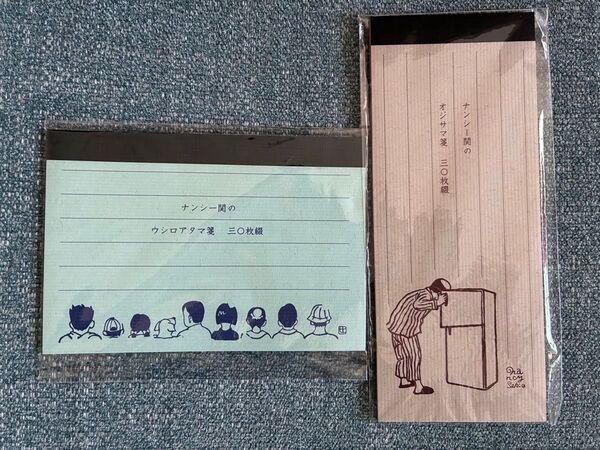 ナンシー関の
ウシロアタマ箋 三〇枚綴
ナンシー関の
オジサマ箋 三〇枚綴